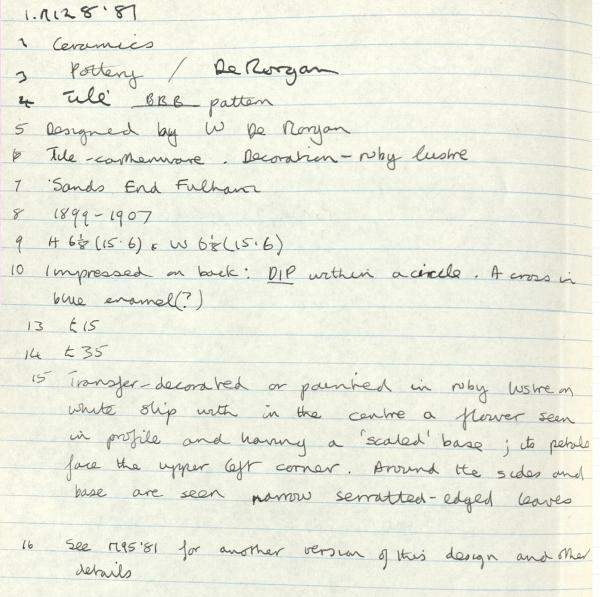 1. M128'81
2 Ceramics
3 Pottery / De Morgan
4 Tile BBB pattern
5 Designed by W De Morgan
6 Tile - earthenware. Decoration - ruby lustre
7 Sands End Fulham
8 1899-1907
9 H 6⅛ (15·6) x W 6⅛ (15·6)
10 Impressed on back: DIP within a circle. A cross in
blue enamel(?)
13 £15
14 £35
15 Transfer-decorated or painted in ruby lustre on
white slip with in the centre a flower seen
in profile and having a 'scaled' base; its petals
face the upper left corner. Around the sides and
base are seen narrow serratted-edged leaves
16 See M95'81 for another version of this design and other
details